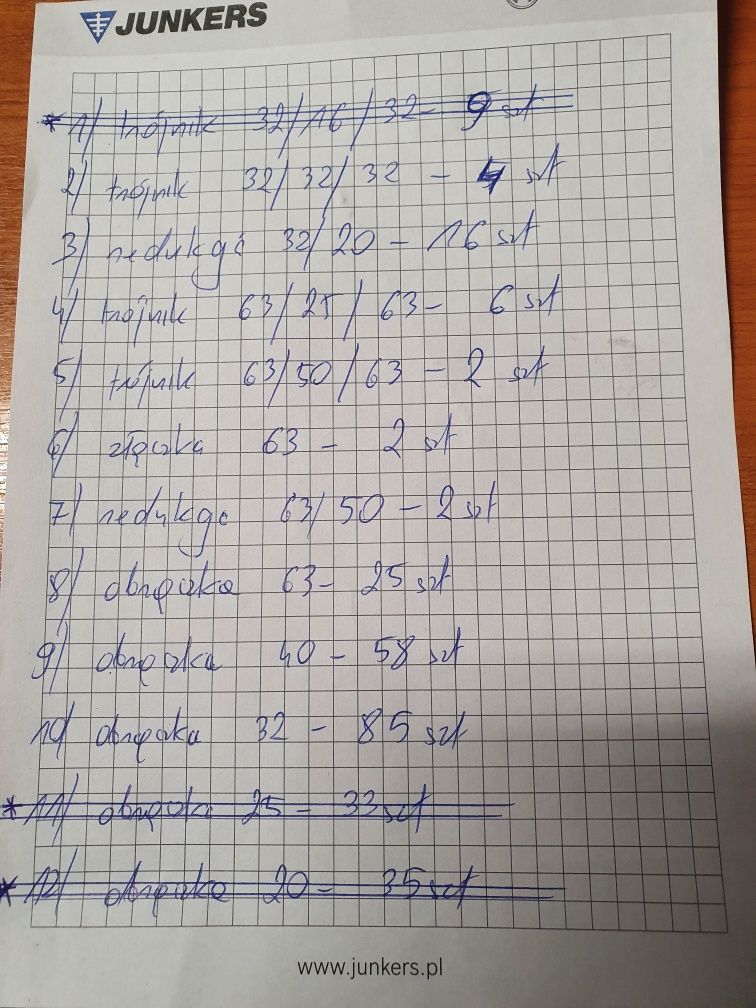 JUNKERS
* 1) trójnik 32/16/32 - 9 szt
2) trójnik 32/32/32 - 4 szt
3) redukcja 32/20 - 16 szt
4) trójnik 63/25/63 - 6 szt
5) trójnik 63/50/63 - 2 szt
6) złączka 63 - 2 szt
7) redukcja 63/50 - 2 szt
8) obrączka 63 - 25 szt
9) obrączka 40 - 58 szt
10) obrączka 32 - 85 szt
* 11) obrączka 25 - 33 szt
* 12) obrączka 20 - 35 szt
www.junkers.pl